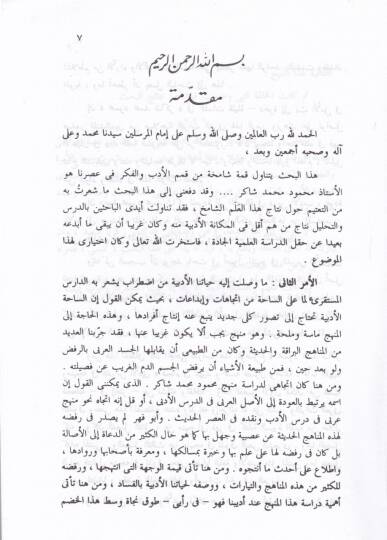 ٧
بسم الله الرحمن الرحيم
مقدّمة
الحمد لله رب العالمين وصلى الله وسلم على إمام المرسلين سيدنا محمد وعلى
آله وصحبه أجمعين وبعد ،
هذا البحث يتناول قمة شامخة من قمم الأدب والفكر فى عصرنا هو
الأستاذ محمود محمد شاكر .... وقد دفعنى إلى هذا البحث ما شعرتُ به
من التعتيم حول نتاج هذا العَلَم الشامخ ، فقد تناولت أيدى الباحثين بالدرس
والتحليل نتاج من هم أقل فى المكانة الأدبية منه وكان غريبا أن يبقى ما أبدعه
بعيدا عن حقل الدراسة العلمية الجادة ، فاستخرت الله تعالى وكان اختيارى لهذا
الموضوع .
الأمر الثانى : ما وصلت إليه حياتنا الأدبية من اضطراب يشعر به الدارس
المستقرئ لما على الساحة من اتجاهات وإبداعات ، بحيث يمكن القول إن الساحة
الأدبية تحتاج إلى تصور كل جديد ينبع عنه إنتاج أفرادها ، وهذه الحاجة إلى
المنهج ماسة وملحة . وهو منهج يجب ألا يكون غريبا عنها ، فقد جرّبنا العديد
من المناهج البراقة والحديثة وكان من الطبيعى أن يقابلها الجسد العربى بالرفض
ولو بعد حين ، فمن طبيعة الأشياء أن يرفض الجسم الدم الغريب عن فصيلته .
ومن هنا كان اتجاهى لدراسة منهج محمود محمد شاكر . الذى يمكننى القول إن
اسمه يرتبط بالعودة إلى الأصل العربى فى الدرس الأدبى ، أو قل إنه اتجاه نحو منهج
عربى فى درس الأدب ونقده فى العصر الحديث . وأبو فهر لم يصدر فى رفضه
لهذه المناهج الحديثة عن عصبية وجهل بها كما هو حال الكثير من الدعاة إلى الأصالة
بل كان فى رفضه لها على علم بها وخبرة بمسالكها ، ومعرفة بأصحابها وروادها ،
واطلاع على أحدث ما أنتجوه . ومن هنا تأتى قيمة الوجهة التى انتهجها ، ورفضه
للكثير من هذه المناهج والتيارات ، ووصفه لحياتنا الأدبية بالفساد ، ومن هنا تأتى
أهمية دراسة هذا المنهج عند أديبنا فهو – فى رأيى – طوق نجاة وسط هذا الخضم